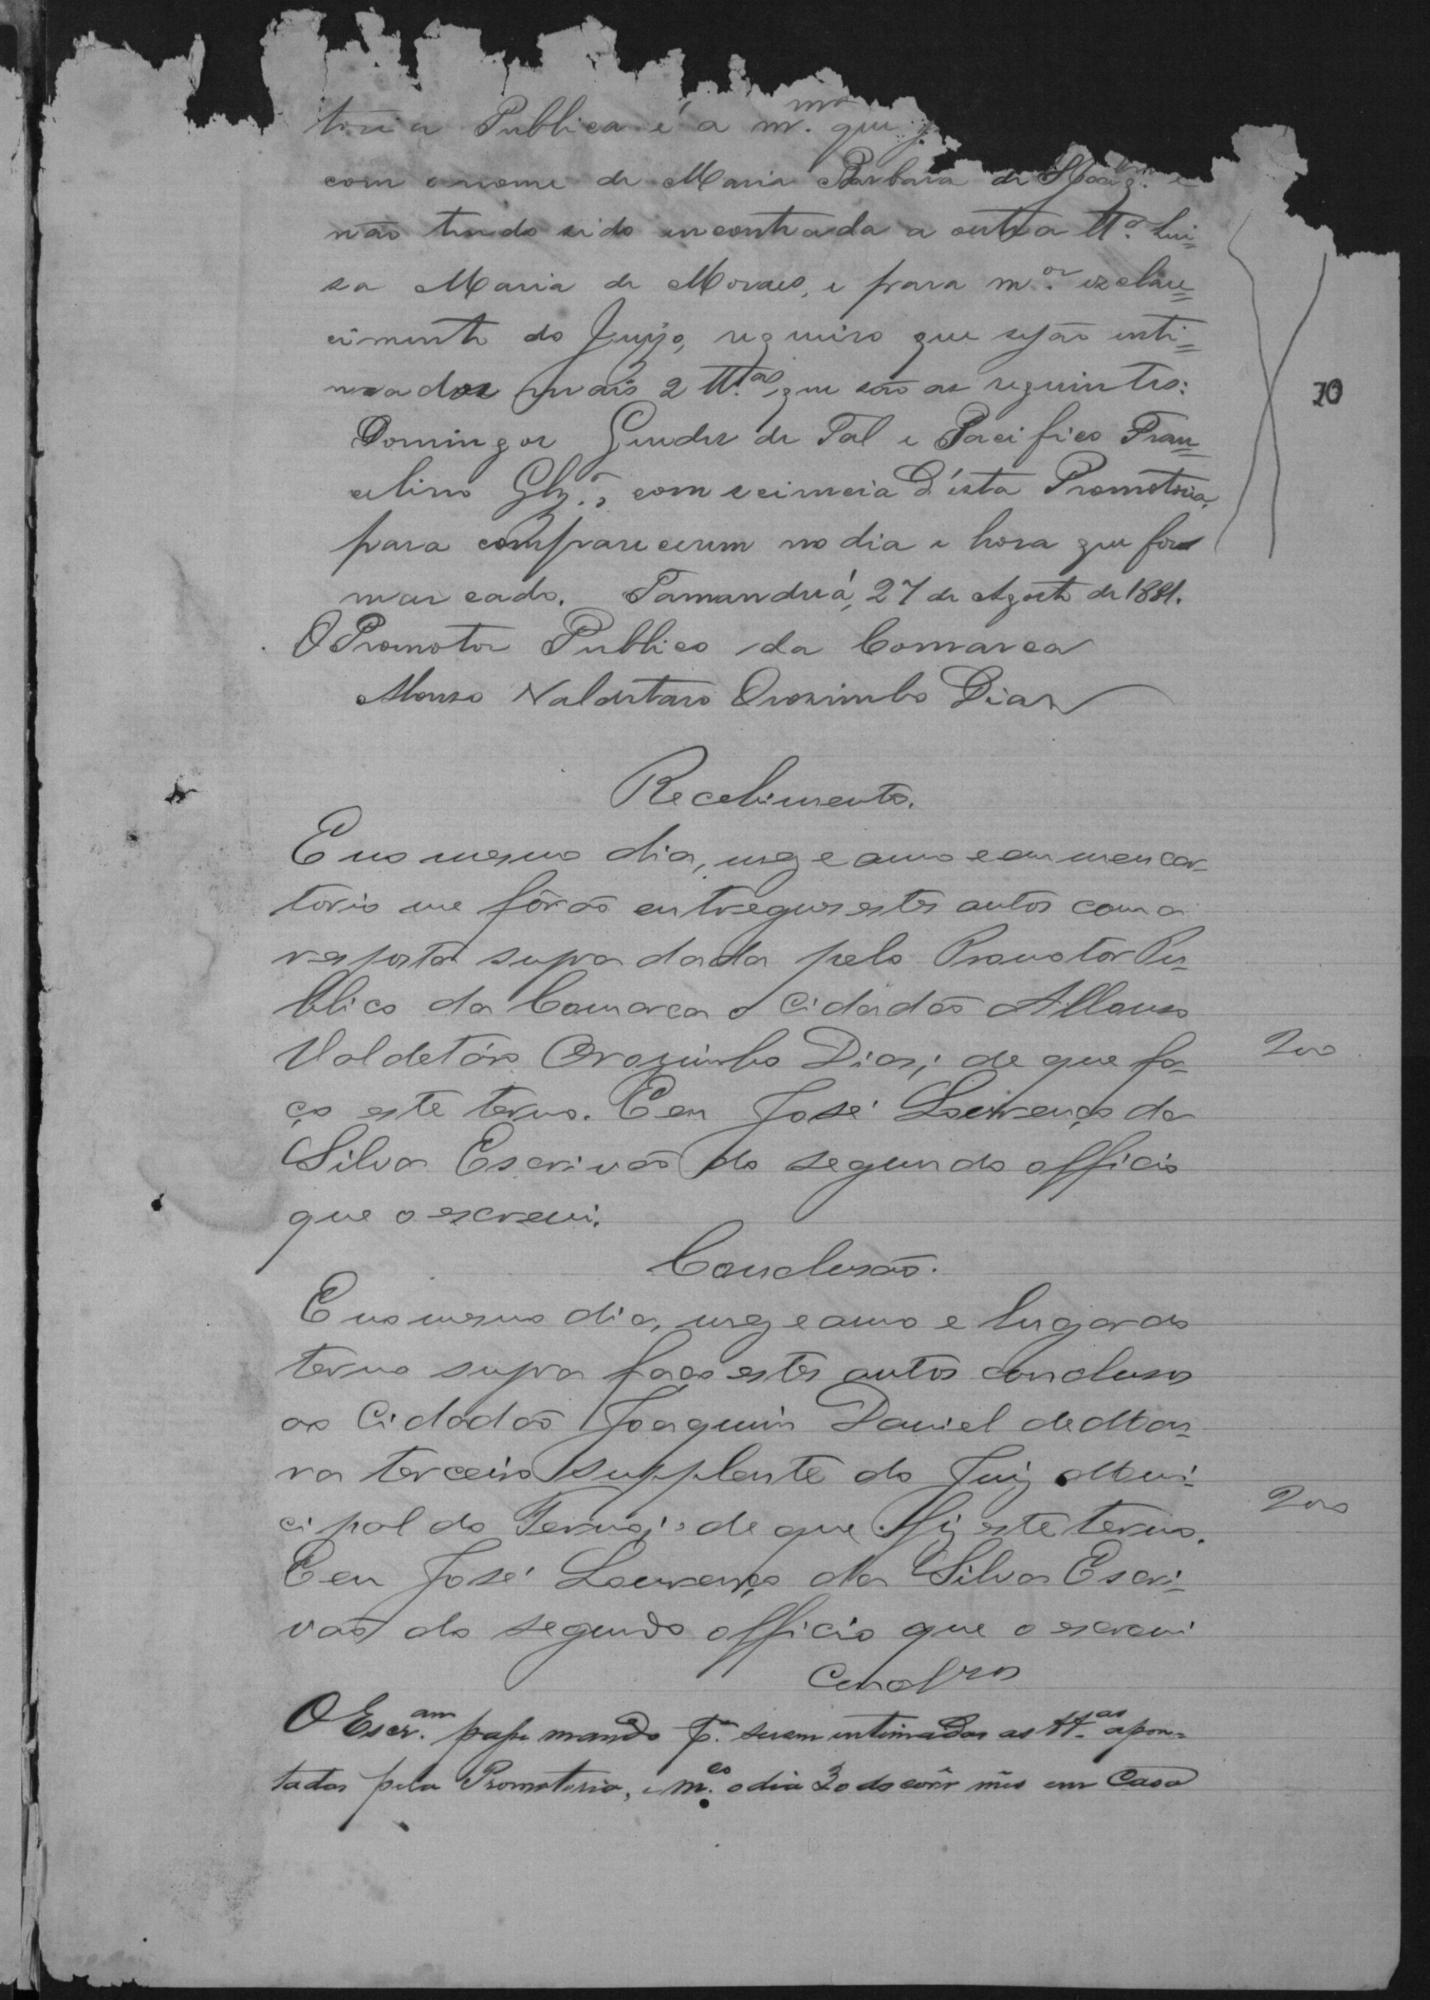 toria Publica é a m.ma que j
com o nome de Maria Barbara de
não tendo sido encontrada a outra tt.a Lui-
sa Maria de Moraes, e para m.or esclare=
cimento do Juizo, requeiro que sejão inti=
mados mais 2 tt.as, que são as seguintes:
Domingos Guedes de Tal e Pacifico Fran=
celino Glz.s, com sciencia d'esta Promotoria,
para comparecerem no dia e hora que for
marcado. Tamanduá, 27 de Agosto de 1881.
O Promotor Publico da Comarca
Alonso Valdetaro Orozimbo Dias
10
Recebimento.
E no mesmo dia, mez e anno e em meu car-
torio me fôrão entregues estes autos com a
resposta supra dada pelo Promotor Pu-
blico da Comarca o Cidadão Allonso
Valdetáro Orozimbo Dias; de que fa-
ço este termo. E eu José Lourenço da
Silva Escrivão do segundo officio
que o escrevi.
200
Conclusão.
E no mesmo dia, mez e anno e lugar do
termo supra faço estes autos conclusos
ao Cidadão Joaquim Daniel de Mar-
ra terceiro supplente do Juiz Muni-
cipal do Termo; de que fiz este termo.
E eu José Lourenço da Silva Escri-
vão do segundo officio que o escrevi
200
O Escr.am passe mando p.a serem intimadas as tt.as apon-
tadas pela Promotoria, e m.co o dia 30 do corr mês em Casa